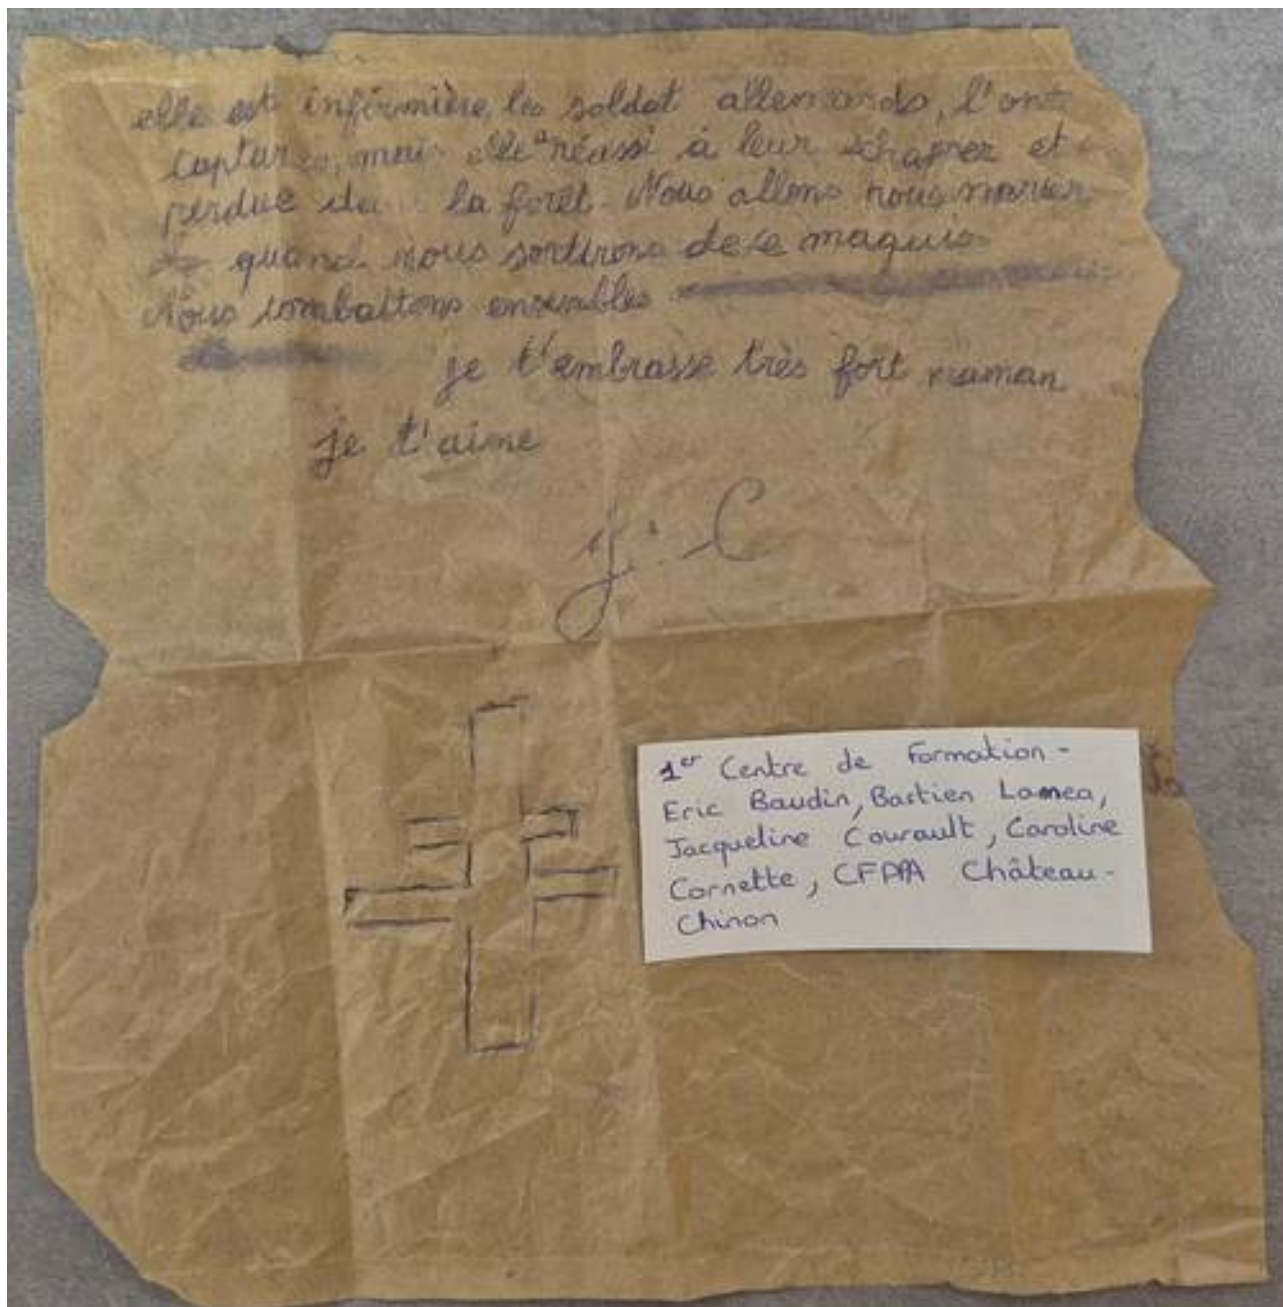 elle est infirmière, les soldat allemands, l'ont
capturée, mais elle a réussi à leur échapper et
perdue da la forêt. Nous allons nous marier
quand nous sortirons de ce maquis.
Nous combattons ensembles
je t'embrasse très fort maman
je t'aime
J. C
1er Centre de Formation -
Eric Baudin, Bastien Lamea,
Jacqueline Courault, Caroline
Cornette, CFPPA Château-
Chinon